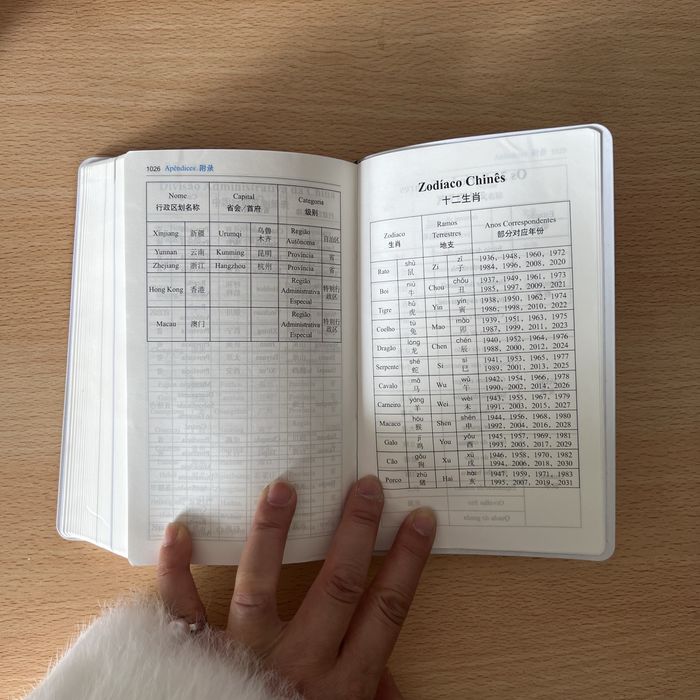 1026 Apêndices 附录
Nome Capital Categoria
行政区划名称 省会/首府 级别
Xinjiang 新疆 Urumqi 乌鲁木齐 Região Autônoma 自治区
Yunnan 云南 Kunming 昆明 Província 省
Zhejiang 浙江 Hangzhou 杭州 Província 省
Hong Kong 香港 Região Administrativa Especial 特别行政区
Macau 澳门 Região Administrativa Especial 特别行政区
Zodíaco Chinês
十二生肖
Zodíaco Ramos Terrestres Anos Correspondentes
生肖 地支 部分对应年份
Rato shǔ 鼠 Zi zǐ 子 1936、1948、1960、1972
1984、1996、2008、2020
Boi niú 牛 Chou chǒu 丑 1937、1949、1961、1973
1985、1997、2009、2021
Tigre hǔ 虎 Yin yín 寅 1938、1950、1962、1974
1986、1998、2010、2022
Coelho tù 兔 Mao mǎo 卯 1939、1951、1963、1975
1987、1999、2011、2023
Dragão lóng 龙 Chen chén 辰 1940、1952、1964、1976
1988、2000、2012、2024
Serpente shé 蛇 Si sì 巳 1941、1953、1965、1977
1989、2001、2013、2025
Cavalo mǎ 马 Wu wǔ 午 1942、1954、1966、1978
1990、2002、2014、2026
Carneiro yáng 羊 Wei wèi 未 1943、1955、1967、1979
1991、2003、2015、2027
Macaco hóu 猴 Shen shēn 申 1944、1956、1968、1980
1992、2004、2016、2028
Galo jī 鸡 You yǒu 酉 1945、1957、1969、1981
1993、2005、2017、2029
Cão gǒu 狗 Xu xū 戌 1946、1958、1970、1982
1994、2006、2018、2030
Porco zhū 猪 Hai hài 亥 1947、1959、1971、1983
1995、2007、2019、2031